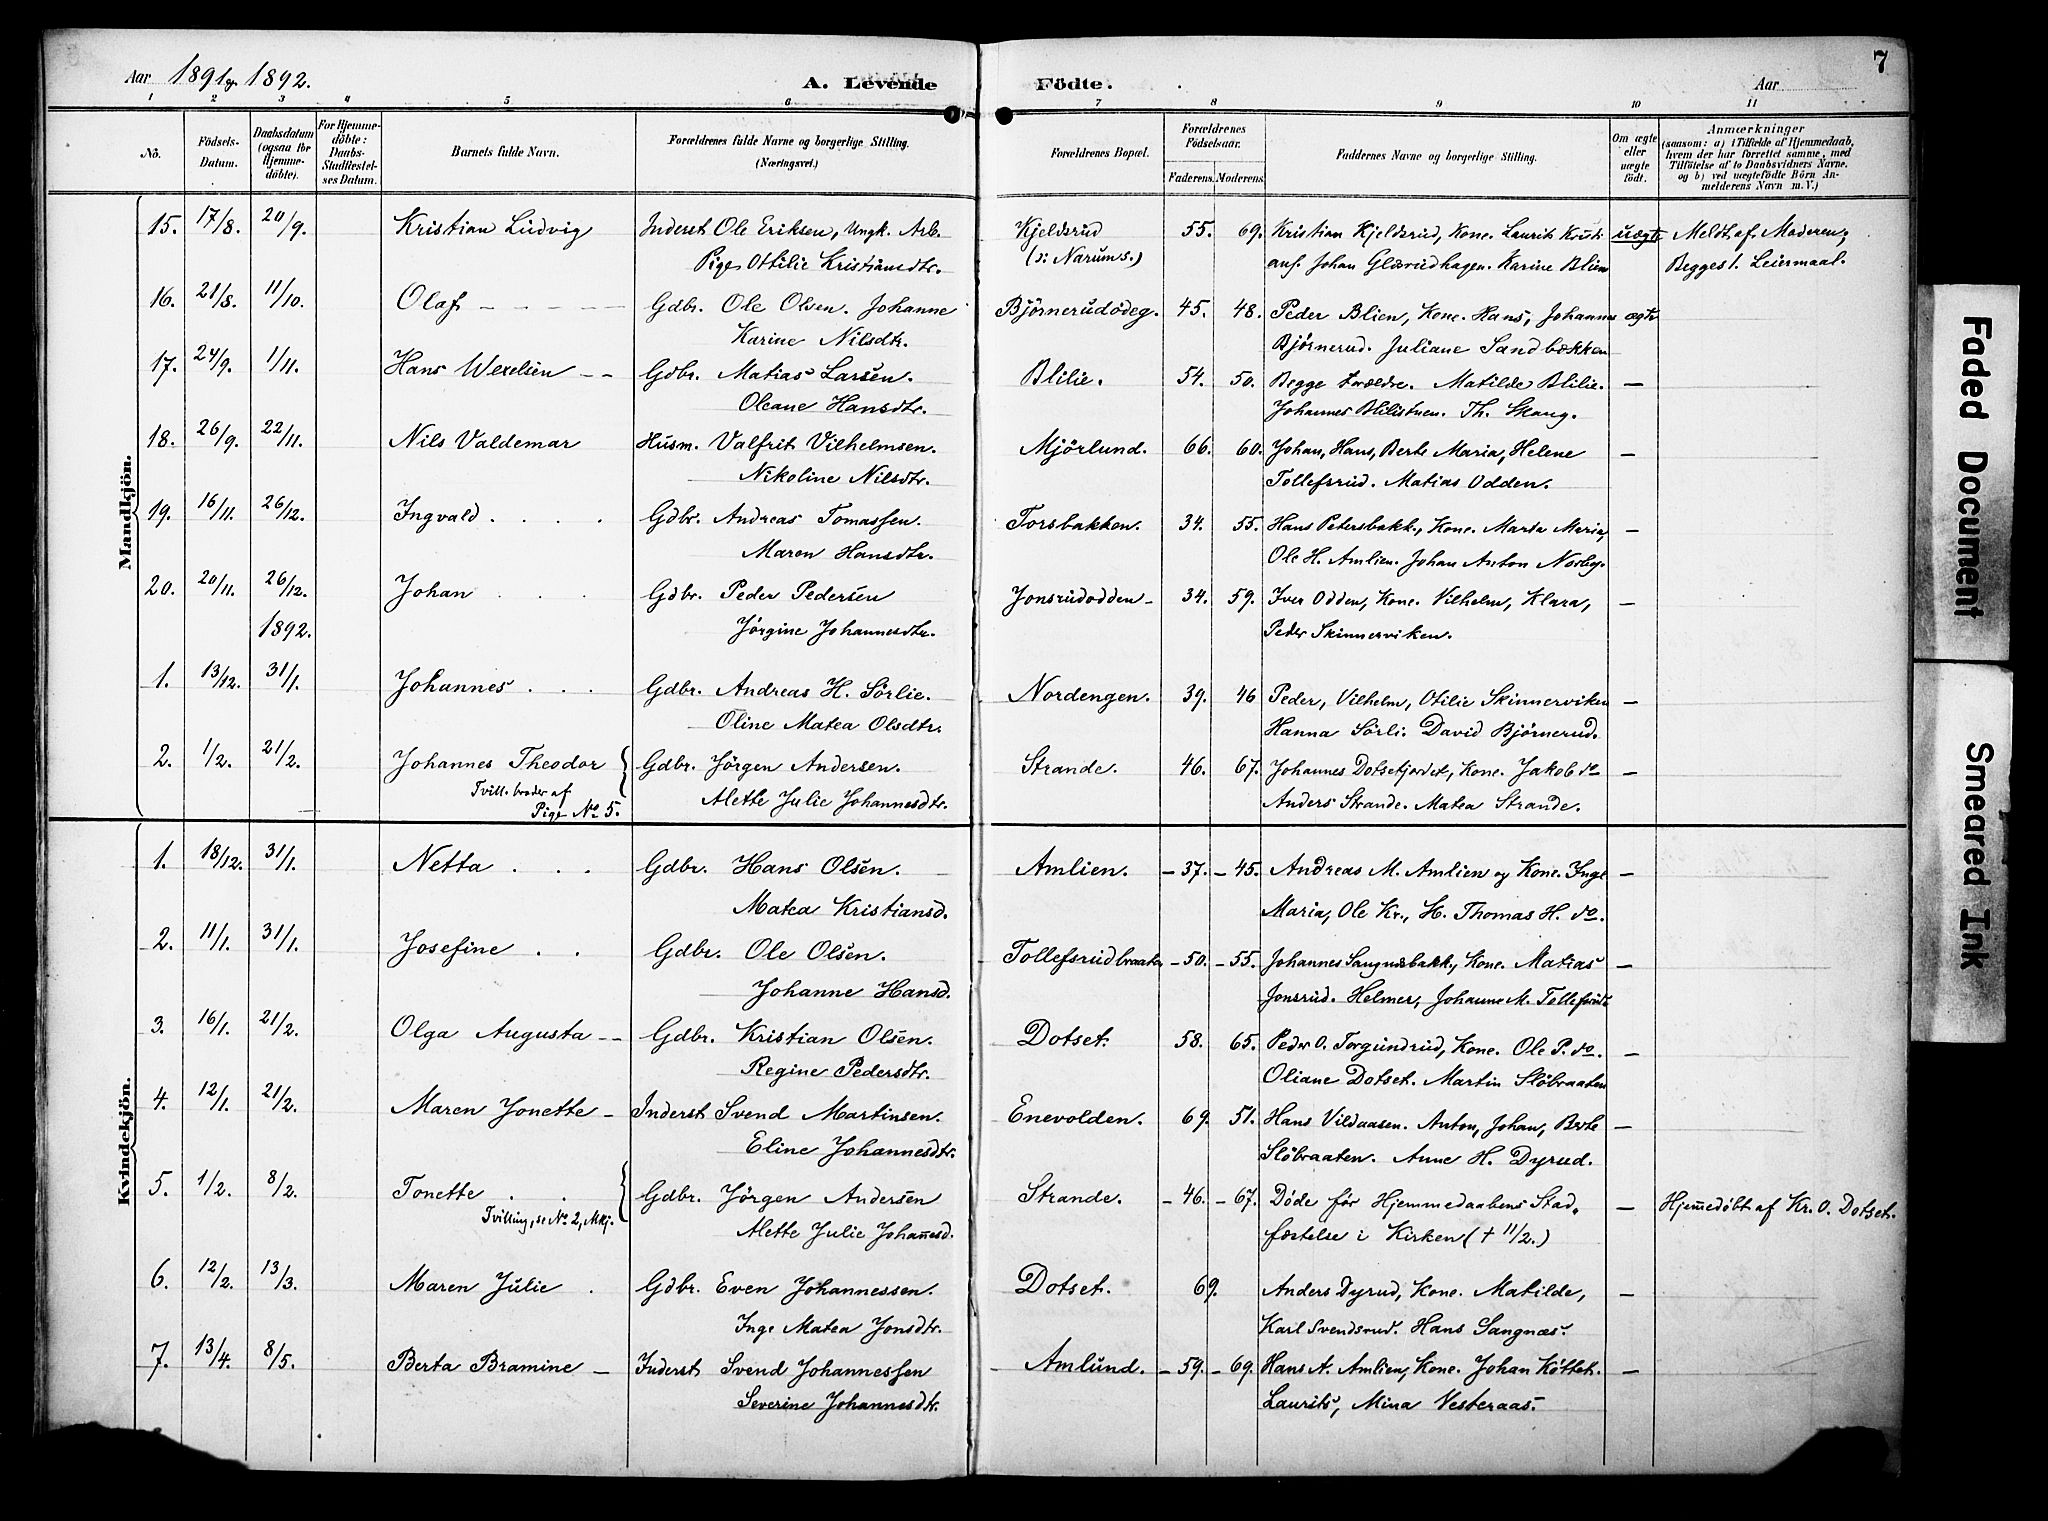 7
Aar 1891 og 1892. A. Levende Födte. Aar
1 2 3 4 5 6 7 8 9 10 11
No. Födsels-Datum. Daabsdatum (ogsaa for Hjemme-döbte). For Hjemme-döbte: Daabs-Stadfæstel-ses Datum. Barnets fulde Navn. Forældrenes fulde Navne og borgerlige Stilling. (Næringsvei.) Forældrenes Bopæl. Forældrenes Födselsaar. Faderens. Moderens. Faddernes Navne og borgerlige Stilling. Om ægte eller uægte födt. Anmærkninger (saasom: a) i Tilfælde af Hjemmedaab, hvem der har forrettet samme, med Tilföielse af to Daabsvidners Navne. og b) ved uægtefödte Börn An-melderens Navn m. V.)
Mandkjön.
15. 17/8. 20/9. Kristian Ludvig Inderst Ole Eriksen, Ungk. Arb. Kjeldsrud 55. 69. Kristian Kjeldsrud, Kone. Laurits uægte Meldt af Moderen;
Pige Ottilie Kristiansdtr. (ɔ: Narums.) Johan Glæsrudhagen. Karine Blien Begges 1. Leiermaal.
16. 21/8. 11/10. Olaf Gdbr. Ole Olsen. Johanne Bjørnerudødeg. 45. 48. Peder Blien, Kone. Hans, Johannes ægte
Karine Nilsdtr. Bjørnerud. Juliane Sandbækken
17. 24/9. 1/11. Hans Wexelsen Gdbr. Matias Larsen. Blilie. 54. 50. Begge Forældre. Matilde Blilie. —
Oleane Hansdtr. Johannes Blilistuen. Th. Skaug.
18. 26/9. 22/11. Nils Valdemar Husm. Valfrit Vilhelmsen. Mjörlund. 66. 60. Johan, Hans, Berte Maria, Helene —
Nikoline Nilsdtr. Tollefsrud. Matias Odden.
19. 16/11. 26/12. Ingvald Gdbr. Andreas Tomassen. Torsbakken. 34. 55. Hans Petersbakk., Kone. Marta Maria, —
Maren Hansdtr. Ole H. Amlien. Johan Anton Norby.
20. 20/11. 26/12. Johan Gdbr. Peder Pedersen Jonsrudodden 34. 59. Iver Odden, Kone. Vilhelm, Klara, —
1892. Jørgine Johannesdtr. Peder Skinnerviken.
1. 13/12. 31/1. Johannes Gdbr. Andreas H. Sörlie. Nordengen. 39. 46 Peder, Vilhelm, Otilie Skinnerviken —
Oline Matea Olsdtr. Hanna Sörli. David Bjørnerud.
2. 1/2. 21/2. Johannes Theodor Gdbr. Jörgen Andersen. Strande. 46. 67. Johannes Dotsetjordet, Kone. Jakob do —
Tvill. broder af Alette Julie Johannesdtr. Anders Strande. Matea Strande.
Pige No 5.
Kvindekjön.
1. 18/12. 31/1. Netta Gdbr. Hans Olsen. Amlien. 37. 45. Andreas M. Amlien og Kone. Inge —
Matea Kristiansd. Maria, Ole Kr., H. Thomas H. do.
2. 11/1. 31/1. Josefine Gdbr. Ole Olsen. Tollefsrudbraaten 50. 55. Johannes Sangnæsbakk., Kone. Matias —
Johanne Hansd. Jonsrud. Helmer, Johanne M. Tollefsrud
3. 16/1. 21/2. Olga Augusta Gdbr. Kristian Olsen. Dotset. 58. 65. Peder O. Torgundrud, Kone. Ole P. do. —
Regine Pedersdtr. Oliane Dotset. Martin Slöbraaten
4. 12/1. 21/2. Maren Jonette Inderst Svend Martinsen. Enevolden. 69. 51. Hans Vildaasen. Anton, Johan, Berte
Eline Johannesdtr. Slöbraaten. Anne H. Dyrud.
5. 1/2. 8/2. Tonette Gdbr. Jörgen Andersen Strande. 46. 67. Døde før Hjemmedaabens Stad- — Hjemmedøbt af Kr. O. Dotset.
Tvilling, se No 2, Mkj. Alette Julie Johannesd. fæstelse i Kirken († 11/2.)
6. 12/2. 13/3. Maren Julie Gdbr. Even Johannessen. Dotset. 69. Anders Dyrud, Kone. Matilde, —
Inge Matea Jonsdtr. Karl Svendsrud. Hans Sangnæs.
7. 13/4. 8/5. Berta Bramine Inderst Svend Johannessen Amlund. 59. 69. Hans A. Amlien, Kone. Johan Köttet. —
Severine Johannesdtr. Laurits, Mina Vesteraas.
Faded Document
Smeared Ink